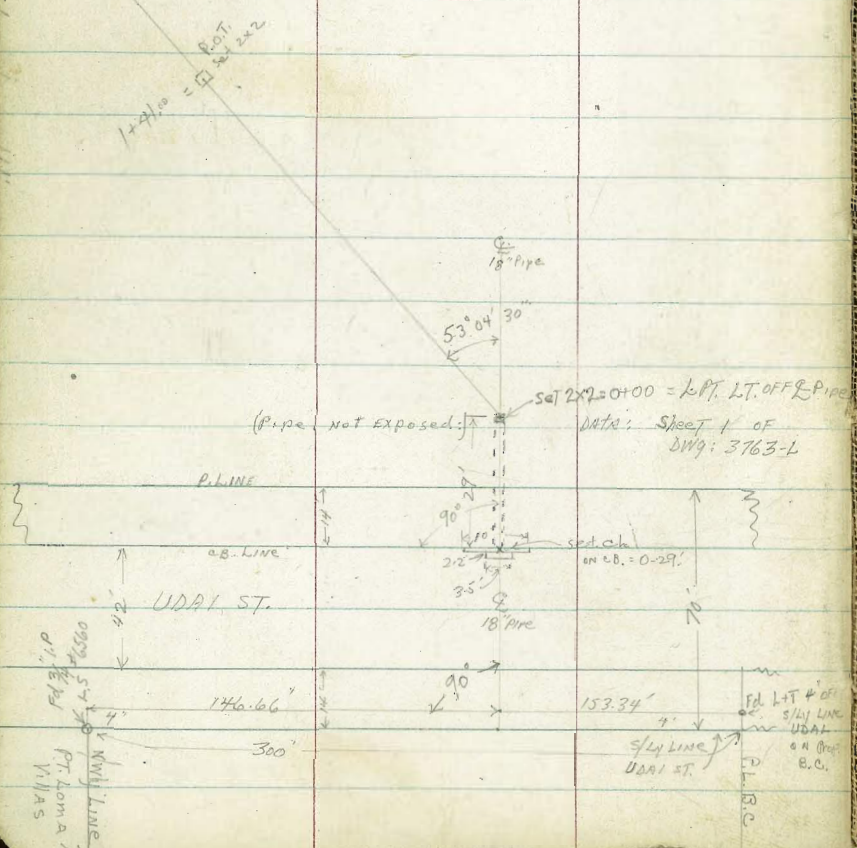 P.O.T.
Set 2x2
1+41.00 =
℄
18" Pipe
53° 04' 30"
Set 2x2 = 0+00 = L PT. LT. OFF ℄ Pipe
(Pipe Not Exposed)
DATA: Sheet 1 OF
DWG: 3763-L
29'
P. LINE
14'
90°
CB. LINE
Set ch
ON CB. = 0-29'
2.2'
3.5'
42'
UDAL ST.
℄
18" Pipe
70'
90°
14'
146.66'
153.34'
4'
4'
300'
Fd L+T 4' OFF
S/LY LINE
UDAL
ON Prod
B.C.
S/LY LINE
UDAL ST.
P.L.B.C
NWLY LINE
PT. Loma
Villas